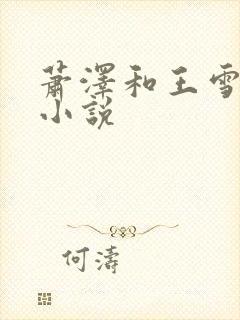 萧澤和王雪
小說
何濤